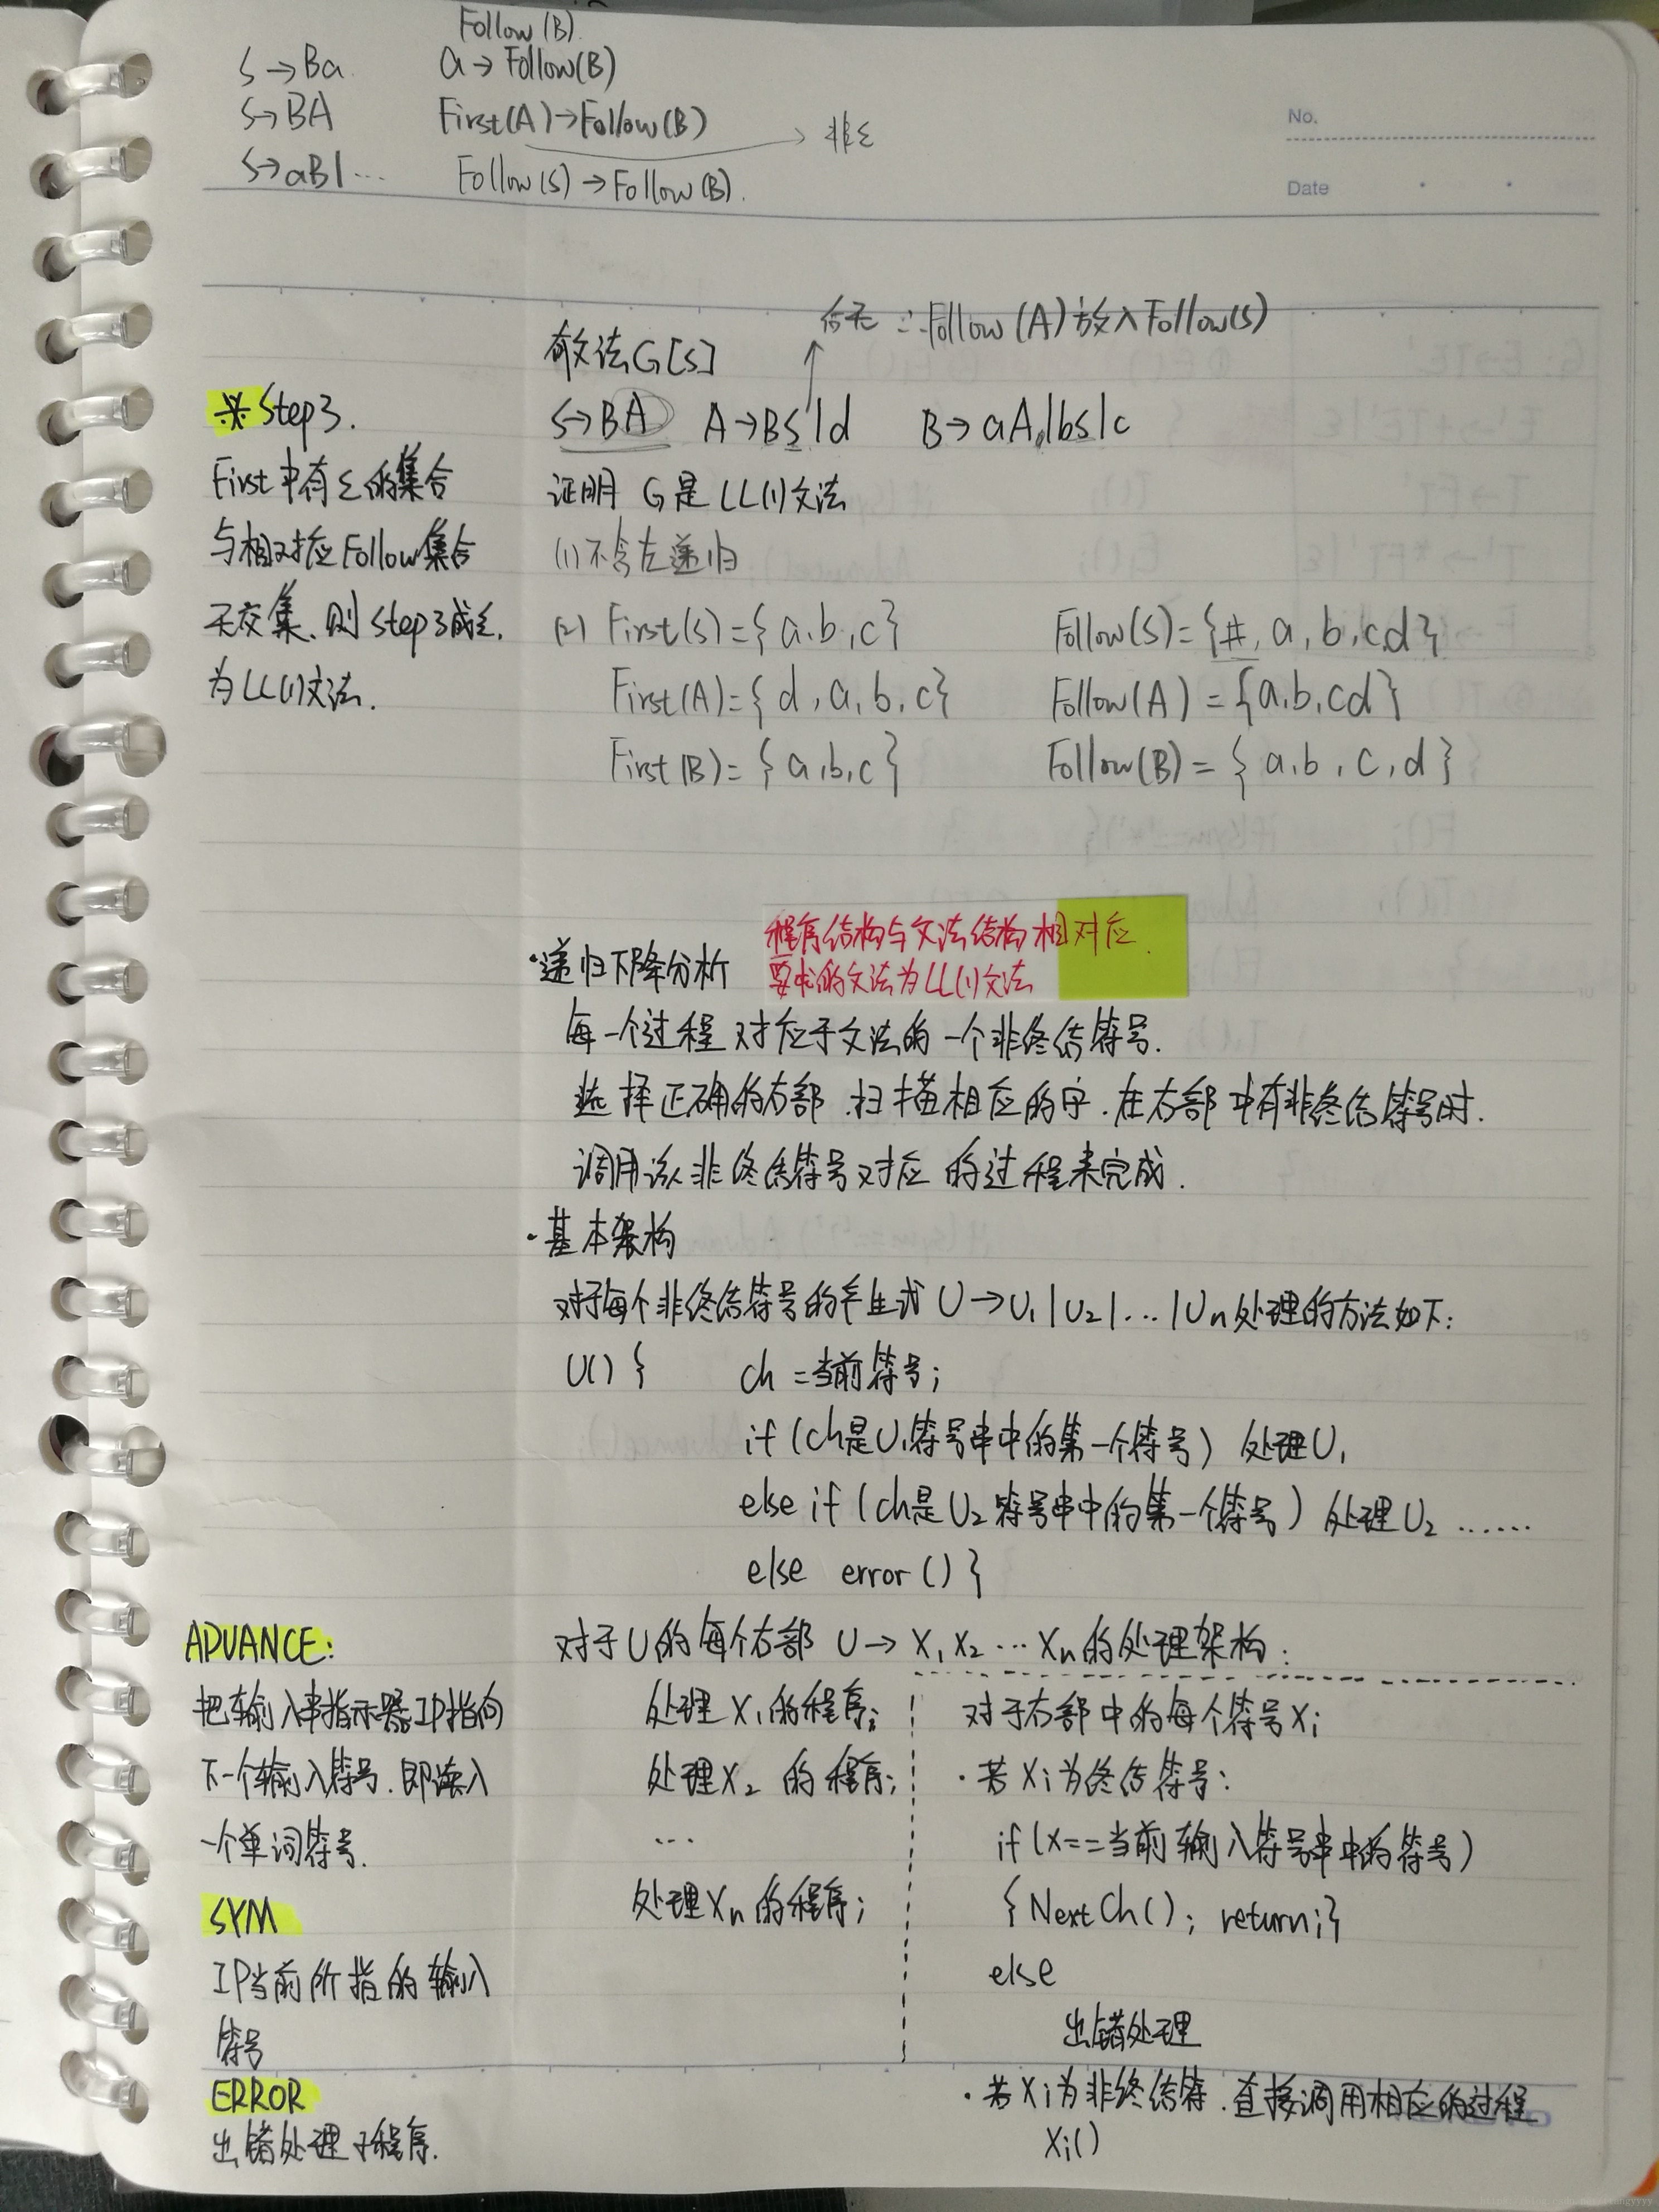 Follow(B)
S→Ba a→Follow(B)
S→BA First(A)→Follow(B) → 非ε
S→aB|... Follow(S)→Follow(B).
No.
Date
后无 ∴Follow(A)放入Follow(S)
文法G[S]
S→BA A→BS|d B→aA|bS|c
证明 G是LL(1)文法
(1)不含左递归
(2) First(S)={a,b,c} Follow(S)={#,a,b,c,d}
First(A)={d,a,b,c} Follow(A)={a,b,cd}
First(B)={a,b,c} Follow(B)={a,b,c,d}
※Step3.
First中有ε的集合
与相对应Follow集合
无交集,则Step3成立.
为LL(1)文法.
·递归下降分析
程序结构与文法结构相对应.
要求的文法为LL(1)文法
每一个过程对应于文法的一个非终结符号.
选择正确的右部.扫描相应的字.在右部中有非终结符号时.
调用该非终结符号对应的过程来完成.
·基本架构
对于每个非终结符号的产生式U→U₁|U₂|...|Un处理的方法如下:
U(){ ch=当前符号;
if(ch是U₁符号串中的第一个符号) 处理U₁
else if(ch是U₂符号串中的第一个符号) 处理U₂ ......
else error()}
对于U的每个右部 U→X₁X₂...Xn的处理架构:
处理X₁的程序;
处理X₂的程序;
...
处理Xn的程序;
对于右部中的每个符号Xi
·若Xi为终结符号:
if(X==当前输入符号串中的符号)
{NextCh(); return;}
else
出错处理
·若Xi为非终结符.直接调用相应的过程
Xi()
ADVANCE:
把输入串指示器IP指向
下一个输入符号.即读入
一个单词符号.
SYM
IP当前所指的输入
符号
ERROR
出错处理子程序.